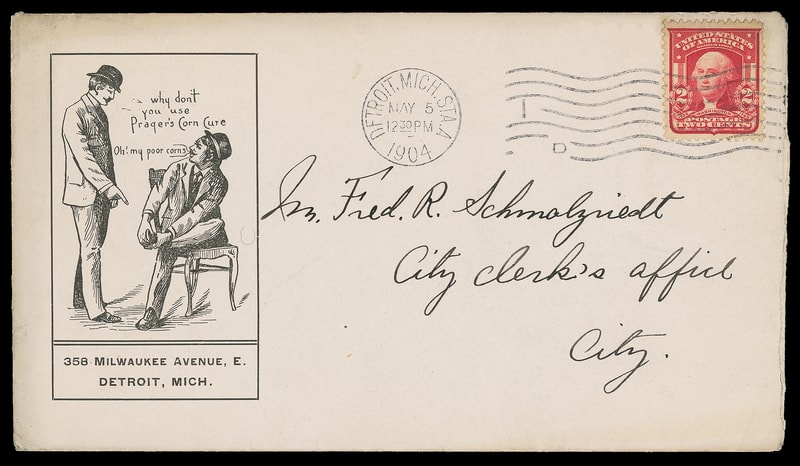 why don't
you use
Prager's Corn Cure
Oh! my poor corns
358 MILWAUKEE AVENUE, E.
DETROIT, MICH.
DETROIT, MICH. STA. A
MAY 5
12 30 PM
1904
D
UNITED STATES
OF AMERICA
2 2
POSTAGE
TWO CENTS
Mr. Fred. R. Schmalzriedt
City clerk's office
City.